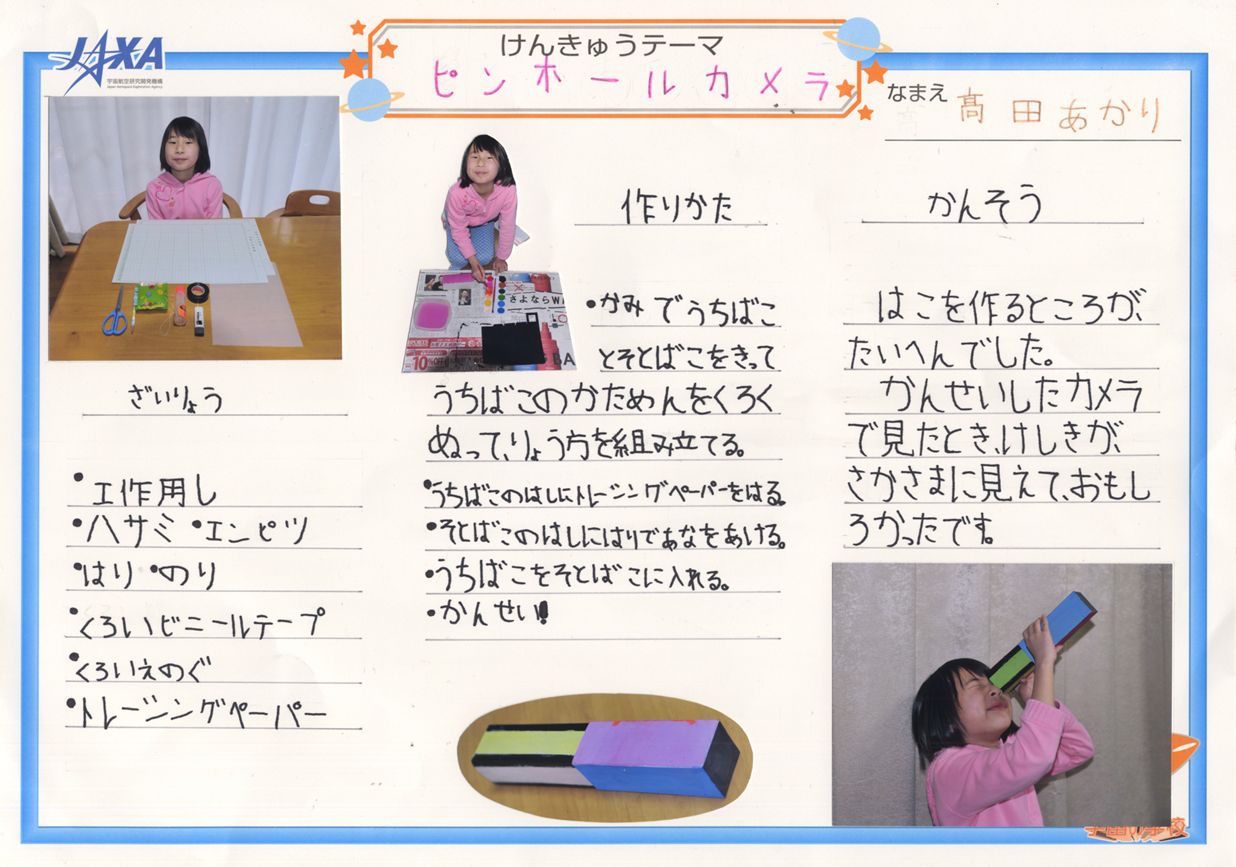 JAXA
宇宙航空研究開発機構
Japan Aerospace Exploration Agency
けんきゅうテーマ
ピンホールカメラ
なまえ 髙田あかり
ざいりょう
・工作用し
・ハサミ ・エンピツ
・はり ・のり
・くろいビニールテープ
・くろいえのぐ
・トレーシングペーパー
さよなら
10%OFF
作りかた
・かみでうちばこ
とそとばこをきって
うちばこのかためんをくろく
ぬって、りょう方を組み立てる。
・うちばこのはしにトレーシングペーパーをはる。
・そとばこのはしにはりであなをあける。
・うちばこをそとばこに入れる。
・かんせい!
かんそう
はこを作るところが、
たいへんでした。
かんせいしたカメラ
で見たとき、けしきが、
さかさまに見えて、おもし
ろかったです。